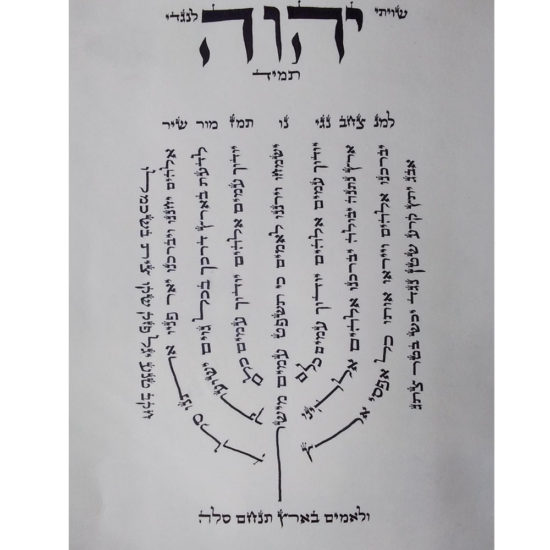 שויתי יהוה לנגדי
תמיד
למנ צחב נגי נו תמז מור שיר
אבג יתץ קרע שטן נגד יכש בטר צתג
יברכנו אלהים וייראו אותו כל אפסי ארץ
ארץ נתנה יבולה יברכנו אלהים אלהינו
יודוך עמים אלהים יודוך עמים כלם
ישמחו וירננו לאמים כי תשפט עמים מישר
יודוך עמים אלהים יודוך עמים כלם
לדעת בארץ דרכך בכל גוים ישועתך
אלהים יחננו ויברכנו יאר פניו אתנו סלה
חקב טנע יגל פזק שקו צית בשכמלו
ולאמים בארץ תנחם סלה